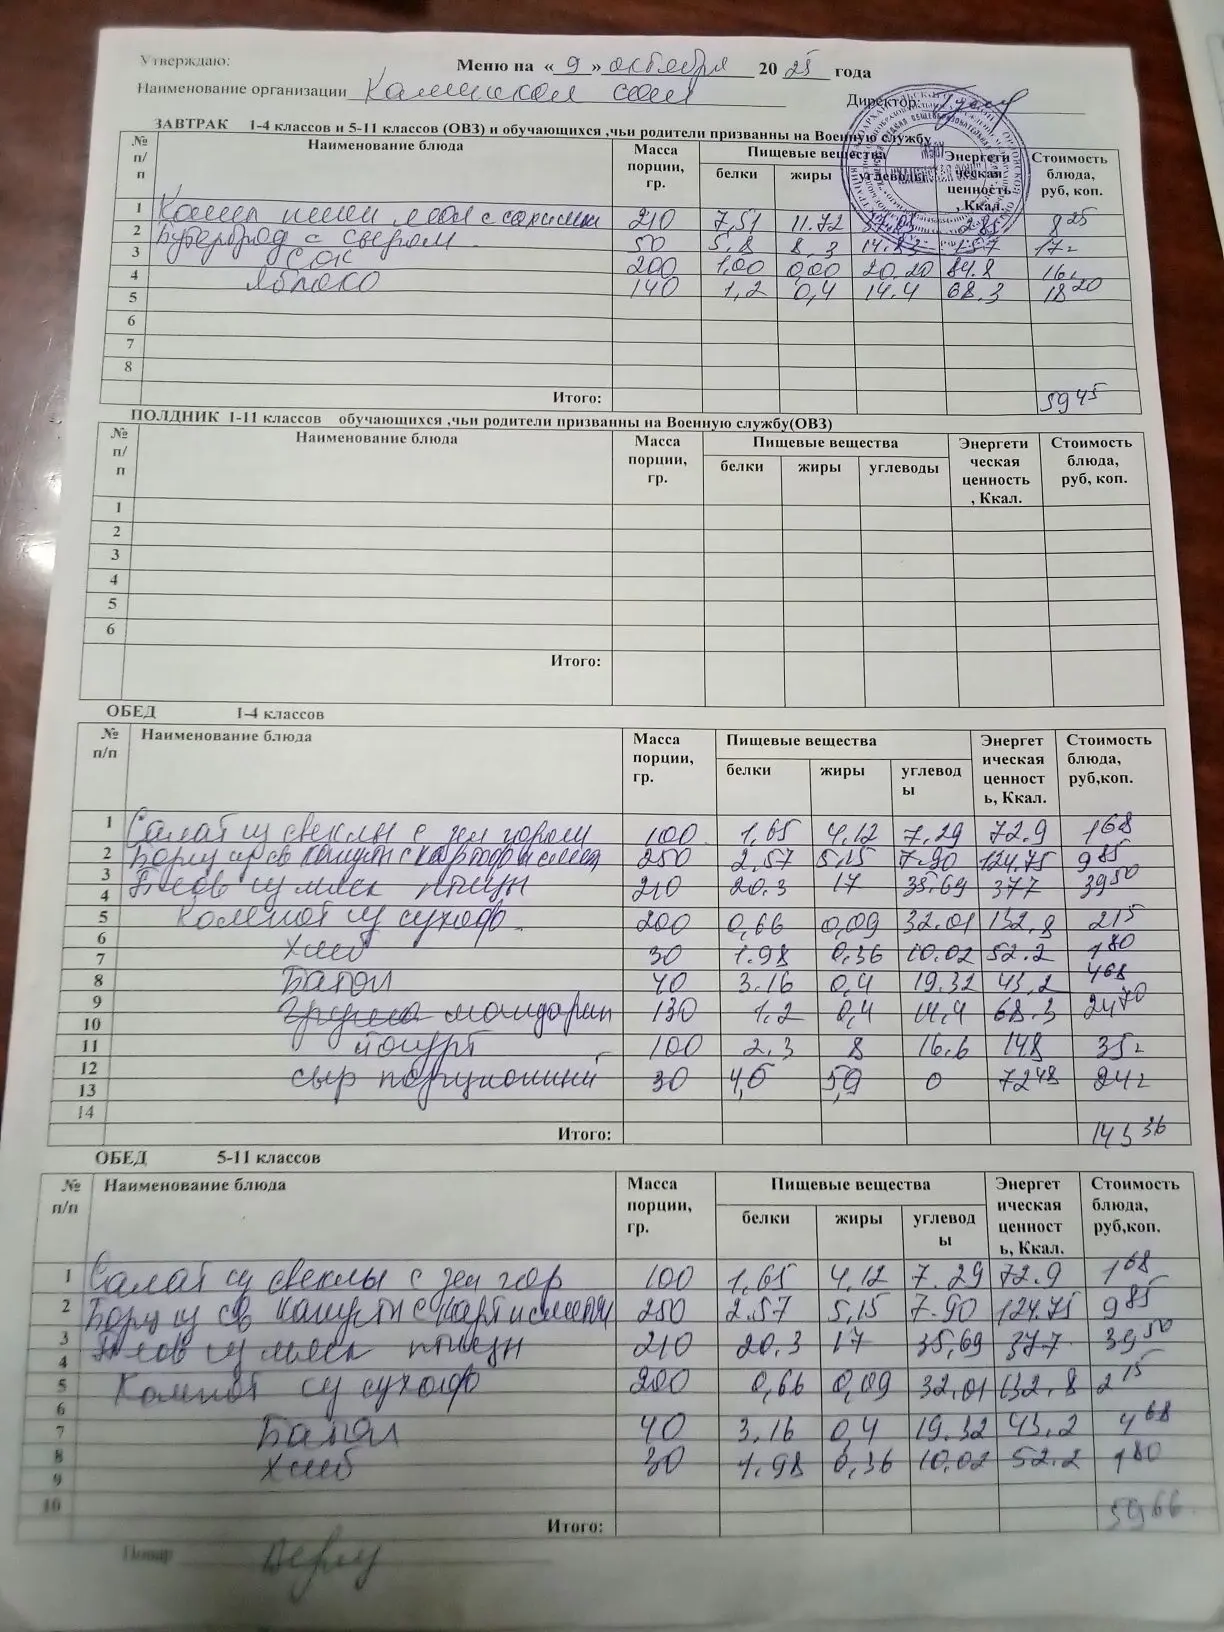 Утверждаю:
Меню на «9» октября 2025 года
Наименование организации Каменская сош
Директор:
ЗАВТРАК 1-4 классов и 5-11 классов (ОВЗ) и обучающихся ,чьи родители призванны на Военную службу
№ п/п Наименование блюда Масса порции, гр. Пищевые вещества Энергетическая ценность, Ккал. Стоимость блюда, руб, коп.
белки жиры углеводы
1 Каша пшен мол с 210 7,51 11.72 285 8 25
2 Бутерброд с сыром 50 5.8 8,3 14.83 157 17=
3 сок 200 1,00 0,00 20.20 84.8 16=
4 Яблоко 140 1,2 0,4 14.4 68.3 18 20
5
6
7
8
Итого: 59 45
ПОЛДНИК 1-11 классов обучающихся ,чьи родители призванны на Военную службу(ОВЗ)
№ п/п Наименование блюда Масса порции, гр. Пищевые вещества Энергетическая ценность, Ккал. Стоимость блюда, руб, коп.
белки жиры углеводы
1
2
3
4
5
6
Итого:
ОБЕД 1-4 классов
№ п/п Наименование блюда Масса порции, гр. Пищевые вещества Энергетическая ценность, Ккал. Стоимость блюда, руб,коп.
белки жиры углеводы
1 Салат из свеклы с зел горош 100 1,65 4,12 7,29 72.9 1 68
2 Борщ из св капусты с картоф и смет 250 2.57 5,15 7.90 124.75 9 85
3 Плов из мяса птицы 210 20.3 17 35,69 377 39 50
4
5 Компот из сухоф. 200 0,66 0,09 32.01 132,8 2 15
6
7 Хлеб 30 1.98 0.36 10.02 52.2 1 80
8 Батон 40 3.16 0,4 19.32 43,2 4 68
9 мандарин 130 1,2 0,4 14,4 68.3 24 70
10
11 йогурт 100 2.3 8 16.6 148 35=
12 сыр порционный 30 4,6 5,9 0 72 48 24=
13
14
Итого: 143 36
ОБЕД 5-11 классов
№ п/п Наименование блюда Масса порции, гр. Пищевые вещества Энергетическая ценность, Ккал. Стоимость блюда, руб,коп.
белки жиры углеводы
1 Салат из свеклы с зел гор 100 1,65 4,12 7.29 72.9 1 68
2 Борщ из св капусты с карт и сметан 250 2.57 5,15 7.90 124.75 9 85
3 Плов из мяса птицы 210 20,3 17 35,69 377 39 50
4
5 Компот из сухоф 200 0,66 0,09 32,01 132,8 2 15
6
7 Батон 40 3,16 0,4 19.32 43,2 4 68
8 Хлеб 30 1.98 0,36 10,02 52.2 1 80
9
10
Итого: 59 66
Повар